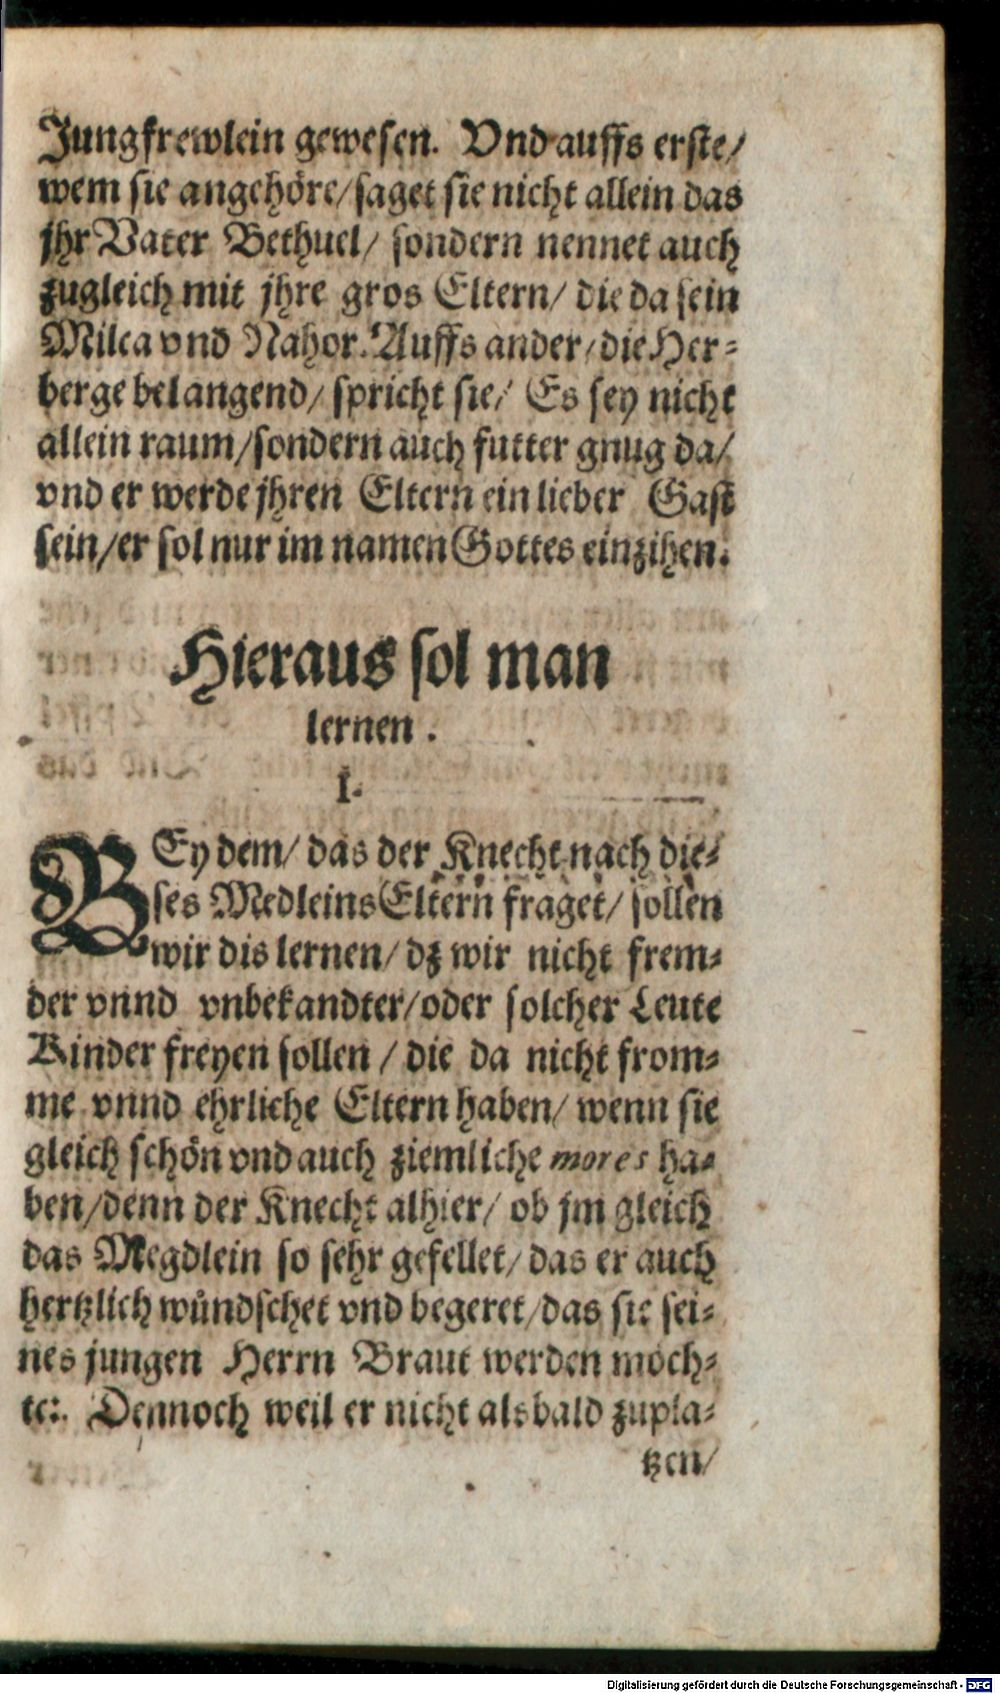 Jungfrewlein gewesen. Vnd auffs erste/
wem sie angehöre/ saget sie nicht allein das
jhr Vater Bethuel/ sondern nennet auch
zugleich mit jhre gros Eltern/ die da sein
Milca vnd Nahor. Auffs ander/ die Her-
berge belangend/ spricht sie/ Es sey nicht
allein raum/ sondern auch futter gnug da/
vnd er werde jhren Eltern ein lieber Gast
sein/ er sol nur im namen Gottes einzihen.
Hieraus sol man
lernen.
I.
BEy dem/ das der Knecht nach die-
ses Medleins Eltern fraget/ sollen
wir dis lernen/ dz wir nicht frem-
der vnnd vnbekandter/ oder solcher Leute
Kinder freyen sollen/ die da nicht from-
me vnnd ehrliche Eltern haben/ wenn sie
gleich schön vnd auch ziemliche mores ha-
ben/ denn der Knecht alhier/ ob jm gleich
das Megdlein so sehr gefellet/ das er auch
hertzlich wůndschet vnd begeret/ das sie sei-
nes jungen Herrn Braut werden möch-
te: Dennoch weil er nicht alsbald zupla-
tzen/
Digitalisierung gefördert durch die Deutsche Forschungsgemeinschaft - DFG